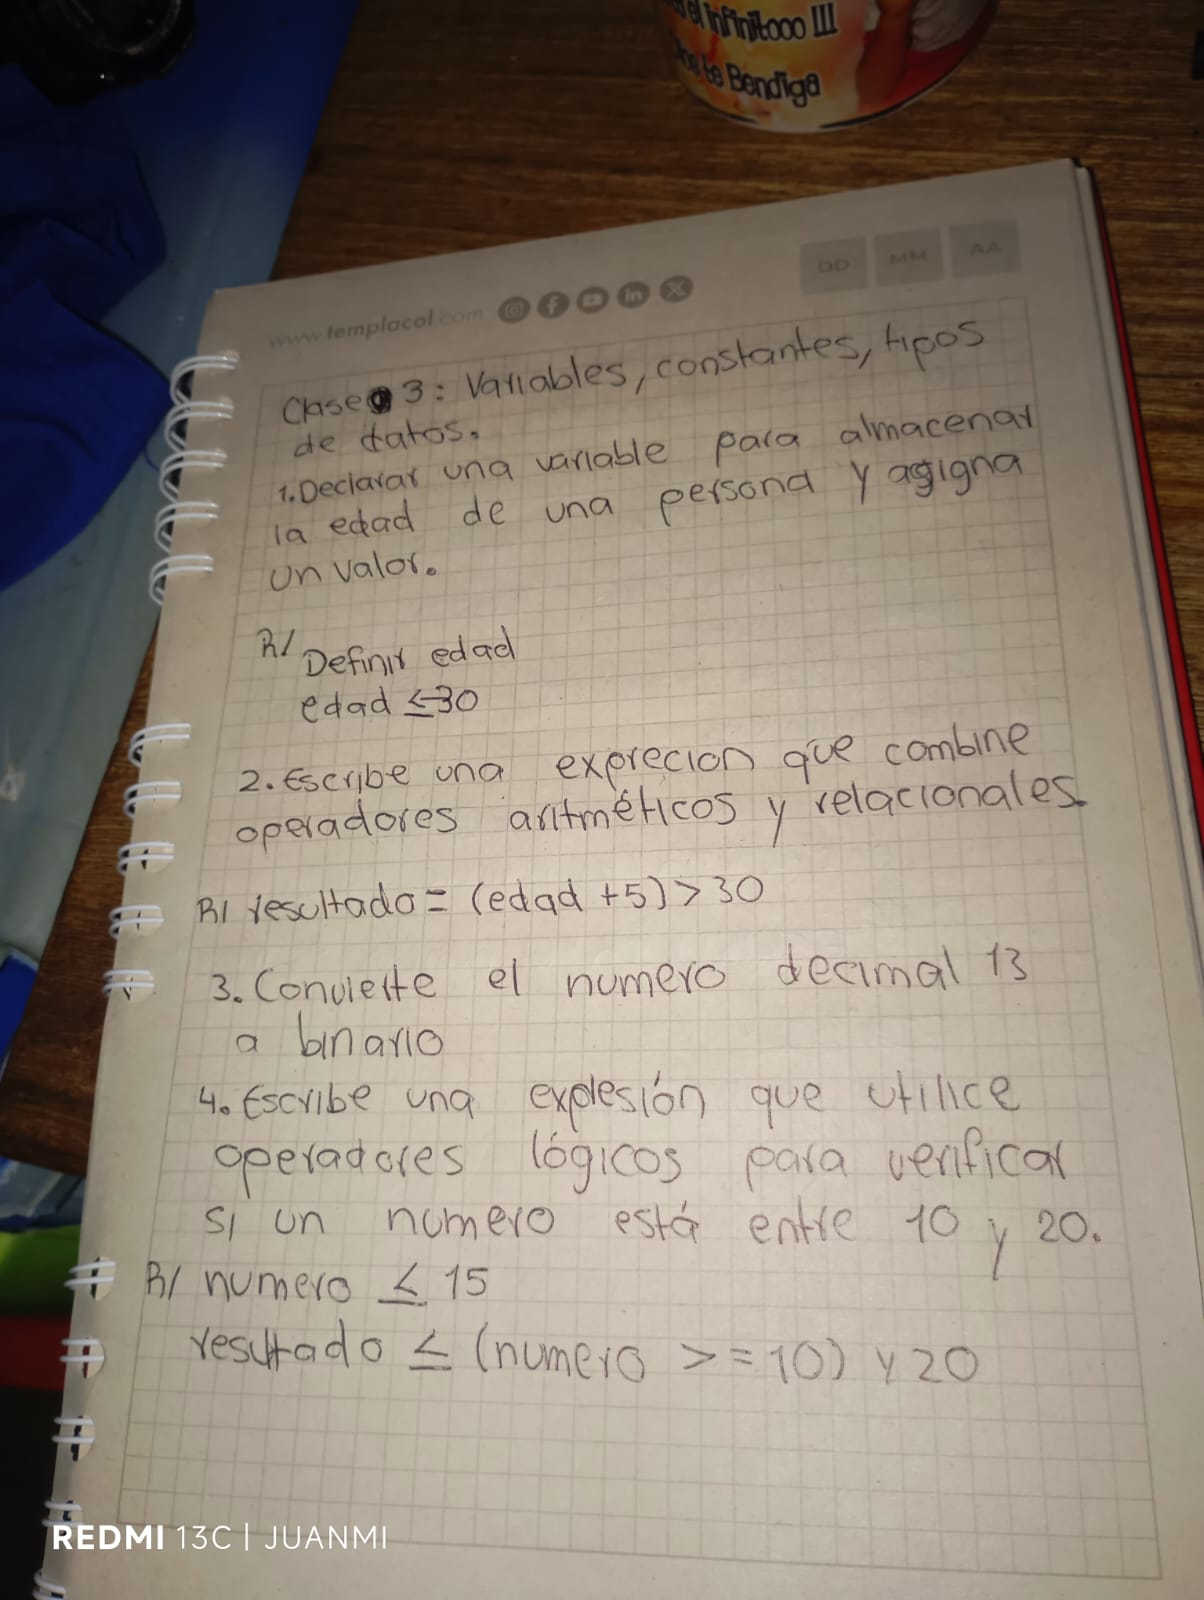 el infinitooo III
te Bendiga
DD MM AA
www.templacol.com
Clase 3: Variables, constantes, tipos
de datos.
1. Declarar una variable para almacenar
la edad de una persona y asigna
un valor.
R/ Definir edad
edad ≤-30
2. Escribe una exprecion que combine
operadores aritméticos y relacionales.
R/ resultado = (edad +5) > 30
3. Convierte el numero decimal 13
a binario
4. Escribe una explesión que utilice
operadores lógicos para verificar
si un numero está entre 10 y 20.
R/ numero ≤ 15
resultado ≤ (numero >= 10) y 20
REDMI 13C | JUANMI